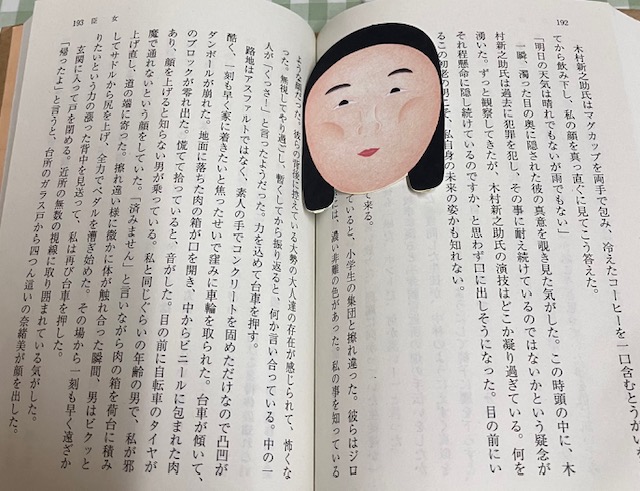 192
木村新之助氏はマグカップを両手で包み、冷えたコーヒーを一口含むとうがい
てから飲み下し、私の顔を真っ直ぐに見てこう答えた。
「明日の天気は晴れでもないが雨でもない」
一瞬、濁った目の奥に隠された彼の真意を覗き見た気がした。この時頭の中に、木
村新之助氏は過去に犯罪を犯し、その事に耐え続けているのではないかという疑念が
湧いた。ずっと観察してきたが、木村新之助氏の演技はどこか凝り過ぎている。何を
それ程懸命に隠し続けているのですか、と思わず口に出しそうになった。目の前にい
るこの初老の男こそ、私自身の未来の姿かも知れない。
て来る。
ていると、小学生の集団と擦れ違った。彼らはジロ
には、濃い非難の色があった。私の事を知っている
193 臣女
ような顔だった。彼らの背後に控えている大勢の大人達の存在が感じられて、怖くな
った。無視してやり過ごし、暫くしてから振り返ると、何か言い合っている。中の一
人が「くっさ！」と言ったようだった。力を込めて台車を押す。
路地はアスファルトではなく、素人の手でコンクリートを固めただけなので凸凹が
酷く、一刻も早く家に着きたいと焦ったせいで窪みに車輪を取られた。台車が傾いて、
ダンボールが崩れた。地面に落ちた肉の箱が口を開き、中からビニールに包まれた肉
のブロックが零れ出た。慌てて拾っていると、音がした。目の前に自転車のタイヤが
あり、顔を上げると知らない男が乗っている。私と同じぐらいの年齢の男で、私が邪
魔で通れないという顔をしていた。「済みません」と言いながら肉の箱を荷台に積み
上げ直し、道の端に寄った。擦れ違い様に微かに体が触れ合った瞬間、男はビクッと
してサドルから尻を上げ、全力でペダルを漕ぎ始めた。その場から一刻も早く遠ざか
りたいという力の張った背中を見送って、私は再び台車を押した。
玄関に入って戸を閉める。近所の無数の視線に取り囲まれている気がした。
「帰ったよ」と言うと、台所のガラス戸から四つん這いの奈緒美が顔を出した。